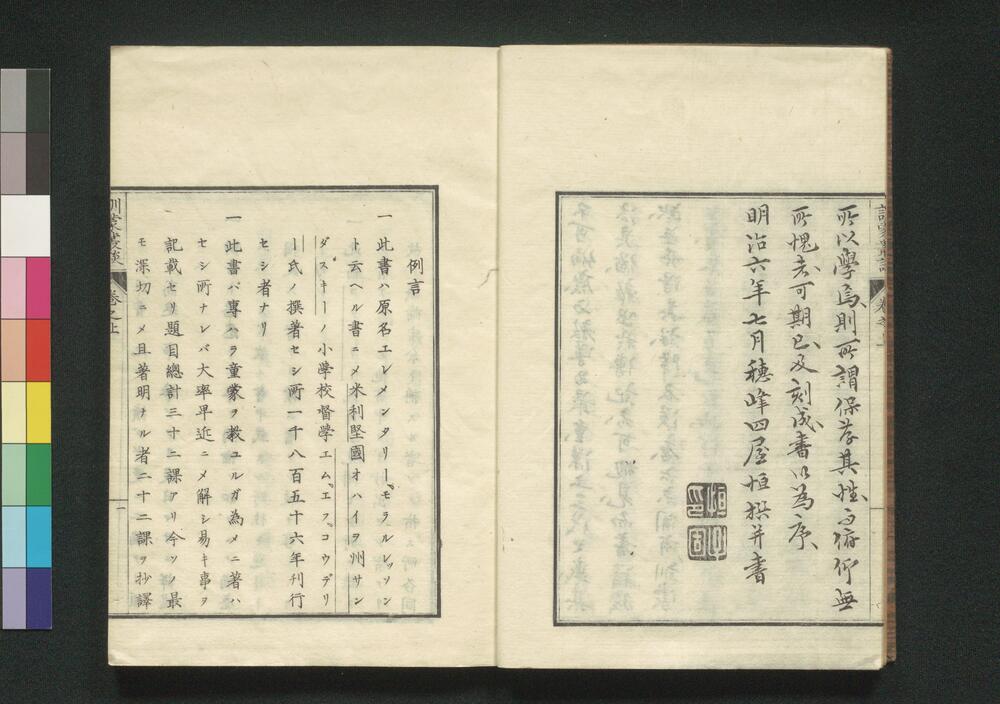 所以學焉則所謂保存其性而俯仰無
所愧者可期已及刻成書以為序
明治六年七月穗峰四屋恒撰并書
例言
一此書ハ原名エレメンタリー モラルレッソン
ト云ヘル書ニメ米利堅國オハイヲ州サン
ダスキーノ小學校督學エム、エフ、コウデリ
ー氏ノ撰著セシ所一千八百五十六年刊行
セシ者ナリ
一此書ハ專ハラ童蒙ヲ教ユルガ為メニ著ハ
セシ所ナレバ大率早近ニメ解シ易キ事ヲ
記載セリ題目總計三十二課アリ今ソノ最
モ深切ニメ且著明ナル者二十二課ヲ抄譯
訓蒙叢談
卷之上
一